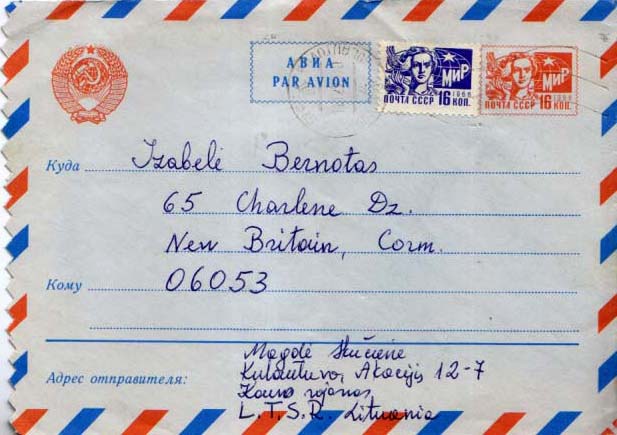 АВИА
PAR AVION
МИР
1966
ПОЧТА СССР 16 КОП.
МИР
1966
ПОЧТА СССР 16 КОП.
Куда
Izabelė Bernotas
65 Charlene Dz.
New Britain, Corm.
Кому
06053
Magdė
Адрес отправителя:
Kulautuva, Akacijų 12-7
Kauno rajonas
L.T.S.R. Lituania